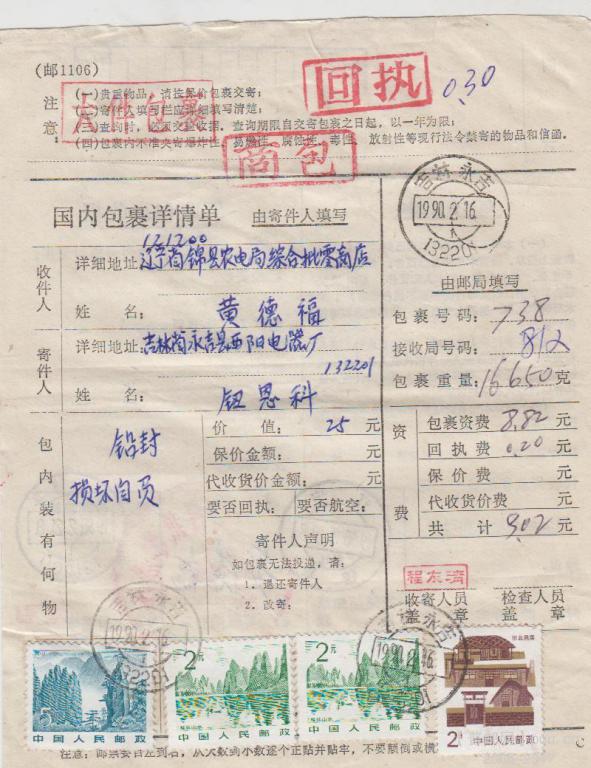 (邮1106)
注意
(一)贵重物品，请按保价包裹交寄；
(二)寄件人填写栏应详细填写清楚；
(三)查询时，必须交验收据，查询期限自交寄包裹之日起，以一年为限；
(四)包裹内不准夹寄爆炸性、易燃性、腐蚀性、毒性、放射性等现行法令禁寄的物品和信函。
回执
0.30
商包
国内包裹详情单 由寄件人填写
吉林永吉
1990.2.16.
132201
121200
收件人
详细地址：辽宁省锦县农电局综合批零商店
姓名：黄德福
寄件人
详细地址：吉林省永吉县西阳电器厂
132201
姓名：钮恩科
由邮局填写
包裹号码：738
接收局号码：812
包裹重量：16650克
包内装有何物
铅封
损坏自负
价值：25元
保价金额：元
代收货价金额：元
要否回执： 要否航空：
寄件人声明
如包裹无法投递，请：
1．退还寄件人
2．改寄：
资费
包裹资费 8.82元
回执费 0.20元
保价费 元
代收货价费 元
共计 9.02元
收寄人员盖章
检查人员盖章
吉林永吉
1990.2.16
132201
吉林永吉
1990.2.16
中国人民邮政
2元
中国人民邮政
2元
中国人民邮政
中国人民邮政